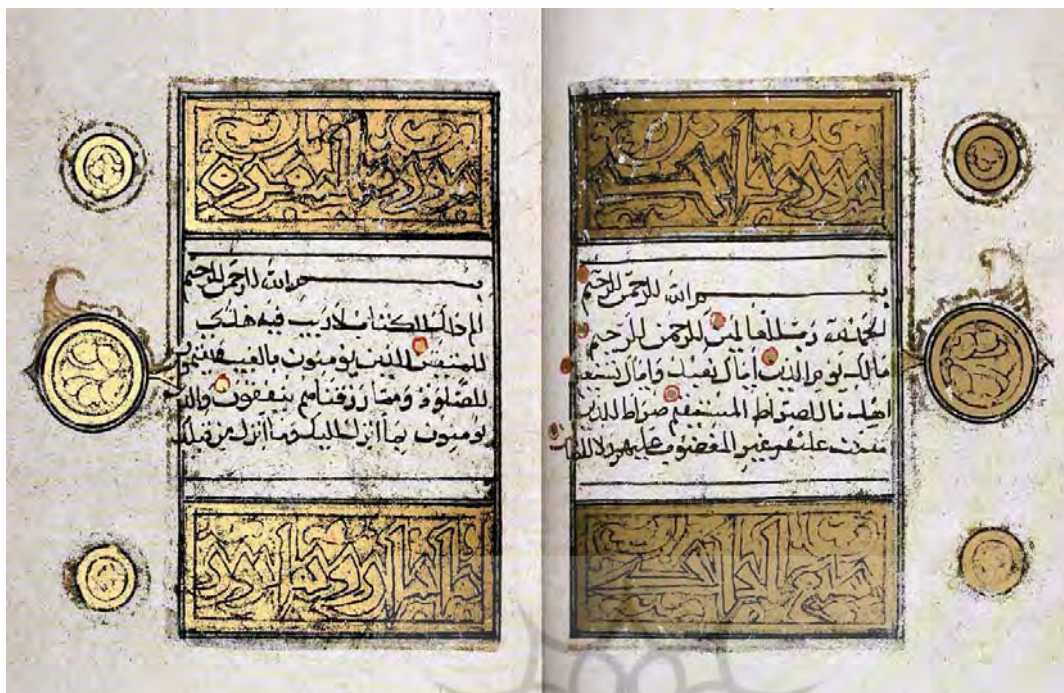 سورة
بسم الله الرحمن الرحيم
الحمد لله رب العالمين الرحمن الرحيم
مالك يوم الدين إياك نعبد وإياك نستعين
اهدنا الصراط المستقيم صراط الذين
أنعمت عليهم غير المغضوب عليهم ولا الضالين
سورة البقرة
بسم الله الرحمن الرحيم
الم ذلك الكتاب لا ريب فيه هدى
للمتقين الذين يومنون بالغيب ويقيمون
الصلوة ومما رزقناهم ينفقون والذين
يومنون بما أنزل إليك وما أنزل من قبلك